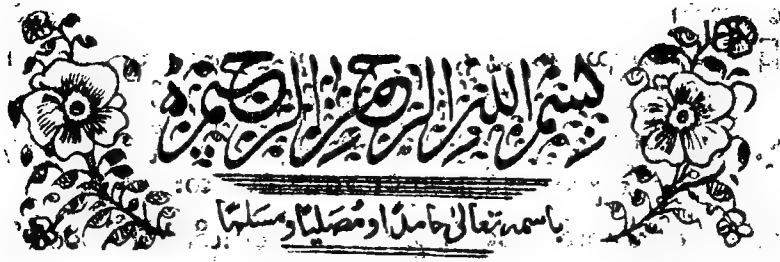 بسم الله الرحمن الرحيم
باسمہ تعالیٰ حامدًا و مُصَلیًا و مسَلمًا